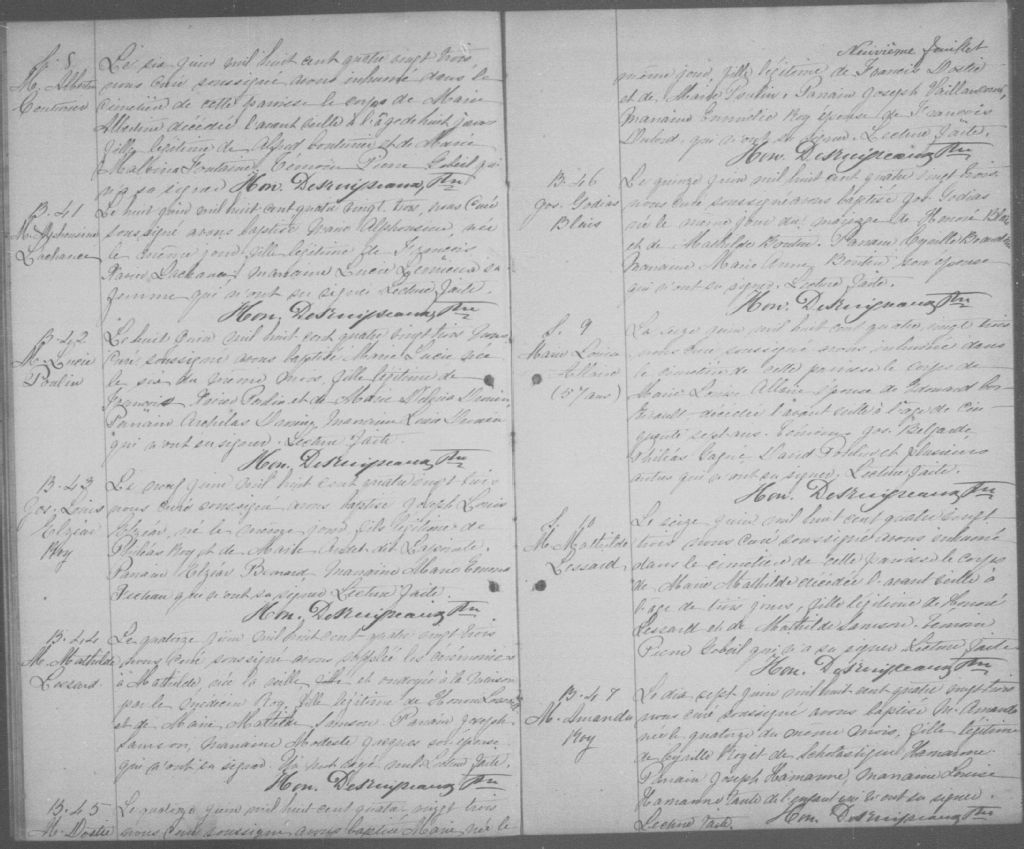 S. 8
M. Albertine
Couturier
Le six juin mil huit cent quatre vingt trois,
nous curé soussigné avons inhumé dans le
cimetière de cette paroisse le corps de Marie
Albertine décédée l'avant veille à l'âge de huit jours
fille légitime de Alfred Couturier et de Marie
Malvina Fontaine. Témoin Pierre Gobeil qui
n'a sa signer Hon. Desruisseaux Ptre
B. 41
M. Alphonsine
Lachance
Le huit juin mil huit cent quatre vingt trois, nous curé
soussigné avons baptisé Marie Alphonsine, née
le même jour fille légitime de François
Xavier Lachance, marraine Lucie sa
femme qui n'ont su signer Lecture faite.
Hon. Desruisseaux Ptre
B. 42
M. Lucie
Poulin
Le huit juin mil huit cent quatre vingt trois nous
curé soussigné avons baptisé Marie Lucie née
le six du même mois, fille légitime de
François Xavier et de Marie
Parrain Archélas marraine
qui n'ont su signer. Lecture faite.
Hon. Desruisseaux Ptre
B. 43
Jos. Louis
Elzéar
Roy
Le onze juin mil huit cent quatre vingt trois
nous curé soussigné avons baptisé Joseph Louis
Elzéar né le même jour, fils légitime de
Roy et de Marie dit
Parrain Elzéar marraine Marie Emma
qui n'ont su signer Lecture faite.
Hon. Desruisseaux Ptre
B. 44
M. Mathilde
Lessard
Le quatorze juin mil huit cent quatre vingt trois
nous curé soussigné avons suppléé les cérémonies
à Mathilde, née la veille et ondoyée à la maison
par le médecin Roy, fille légitime de Honoré Lessard
et de Marie Mathilde Samson. Parrain Joseph
Samson, marraine Modeste Jacques son épouse
qui n'ont su signer. mot rayé nul. Lecture faite.
Hon. Desruisseaux Ptre
B. 45
M. Dostie
Le quatorze juin mil huit cent quatre vingt trois
nous curé soussigné avons baptisé Marie née le
Neuvième feuillet
même jour, fille légitime de Francis Dostie
et de Marie Poulin. Parrain Joseph Vaillancourt,
marraine Roy épouse de François
qui n'ont su signer. Lecture faite.
Hon. Desruisseaux Ptre
B. 46
Jos. Godias
Blais
Le quinze juin mil huit cent quatre vingt trois
nous curé soussigné avons baptisé Jos. Godias
né le même jour du mariage de Honoré Blais
et de Mathilde Boutin. Parrain Cyrille
marraine Marie Anne Boutin son épouse
qui n'ont su signer. Lecture faite.
Hon. Desruisseaux Ptre
S. 9
Marie Louise
Allaire
(57 ans)
Le seize juin mil huit cent quatre vingt trois
nous curé soussigné avons inhumé dans
le cimetière de cette paroisse le corps de
Marie Louise Allaire épouse de
décédée l'avant veille à l'âge de cin-
quante sept ans. Témoins Jos.
David et plusieurs
autres qui n'ont su signer. Lecture faite.
Hon. Desruisseaux Ptre
S. 10
M. Mathilde
Lessard
Le seize juin mil huit cent quatre vingt
trois nous curé soussigné avons inhumé
dans le cimetière de cette paroisse le corps
de Marie Mathilde décédée l'avant veille à
l'âge de trois jours, fille légitime de Honoré
Lessard et de Mathilde Samson. Témoin
Pierre Gobeil qui n'a su signer Lecture faite
Hon. Desruisseaux Ptre
B. 47
M. Amanda
Roy
Le dix sept juin mil huit cent quatre vingt trois
nous curé soussigné avons baptisé M. Amanda
née le quatorze du même mois, fille légitime
de Cyrille Roy et de Scholastique Hamanne
Parrain Joseph Hamanne, marraine Louise
Hamanne tante de l'enfant qui n'ont su signer.
Lecture faite. Hon. Desruisseaux Ptre